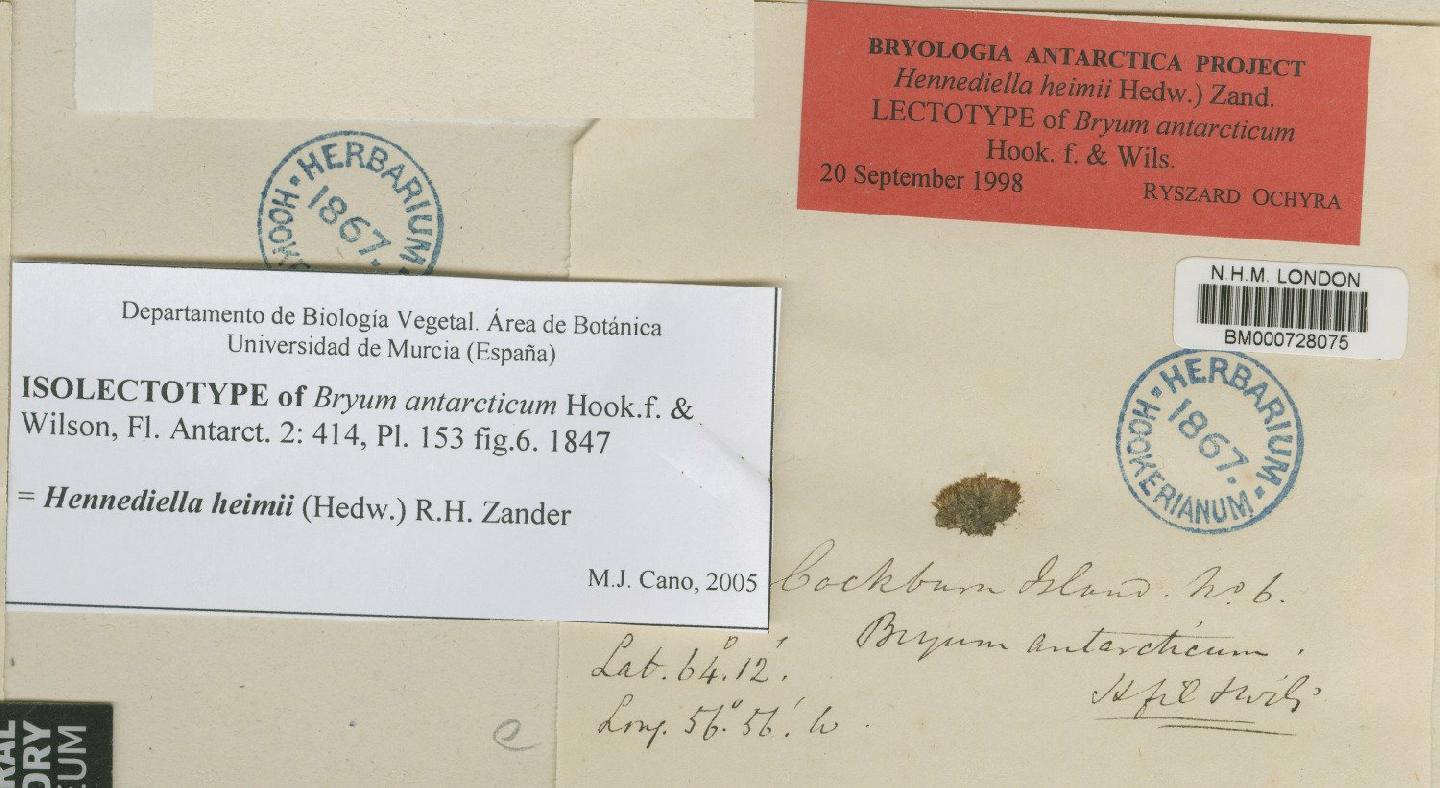 BRYOLOGIA ANTARCTICA PROJECT
Hennediella heimii Hedw.) Zand.
LECTOTYPE of Bryum antarcticum
Hook. f. & Wils.
20 September 1998 RYSZARD OCHYRA
HERBARIUM
HOOK
1867.
N.H.M. LONDON
BM000728075
HERBARIUM
HOOKERIANUM
1867.
Departamento de Biología Vegetal. Área de Botánica
Universidad de Murcia (España)
ISOLECTOTYPE of Bryum antarcticum Hook.f. &
Wilson, Fl. Antarct. 2: 414, Pl. 153 fig.6. 1847
= Hennediella heimii (Hedw.) R.H. Zander
M.J. Cano, 2005
Cockburn Island. No 6.
Bryum antarcticum.
H fil & Wils
Lat. 64°.12'.
Long. 56°.56'. W.
e
RAL
ORY
EUM